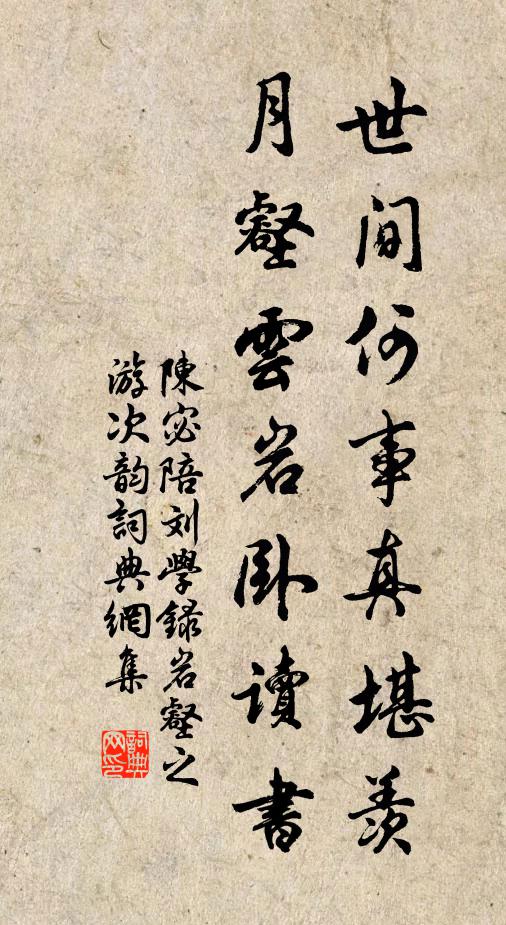 世间何事真堪羡
月壑雲岩卧读書
陳宓陪刘學録岩壑之
游次韵詞典網集
詞典网印